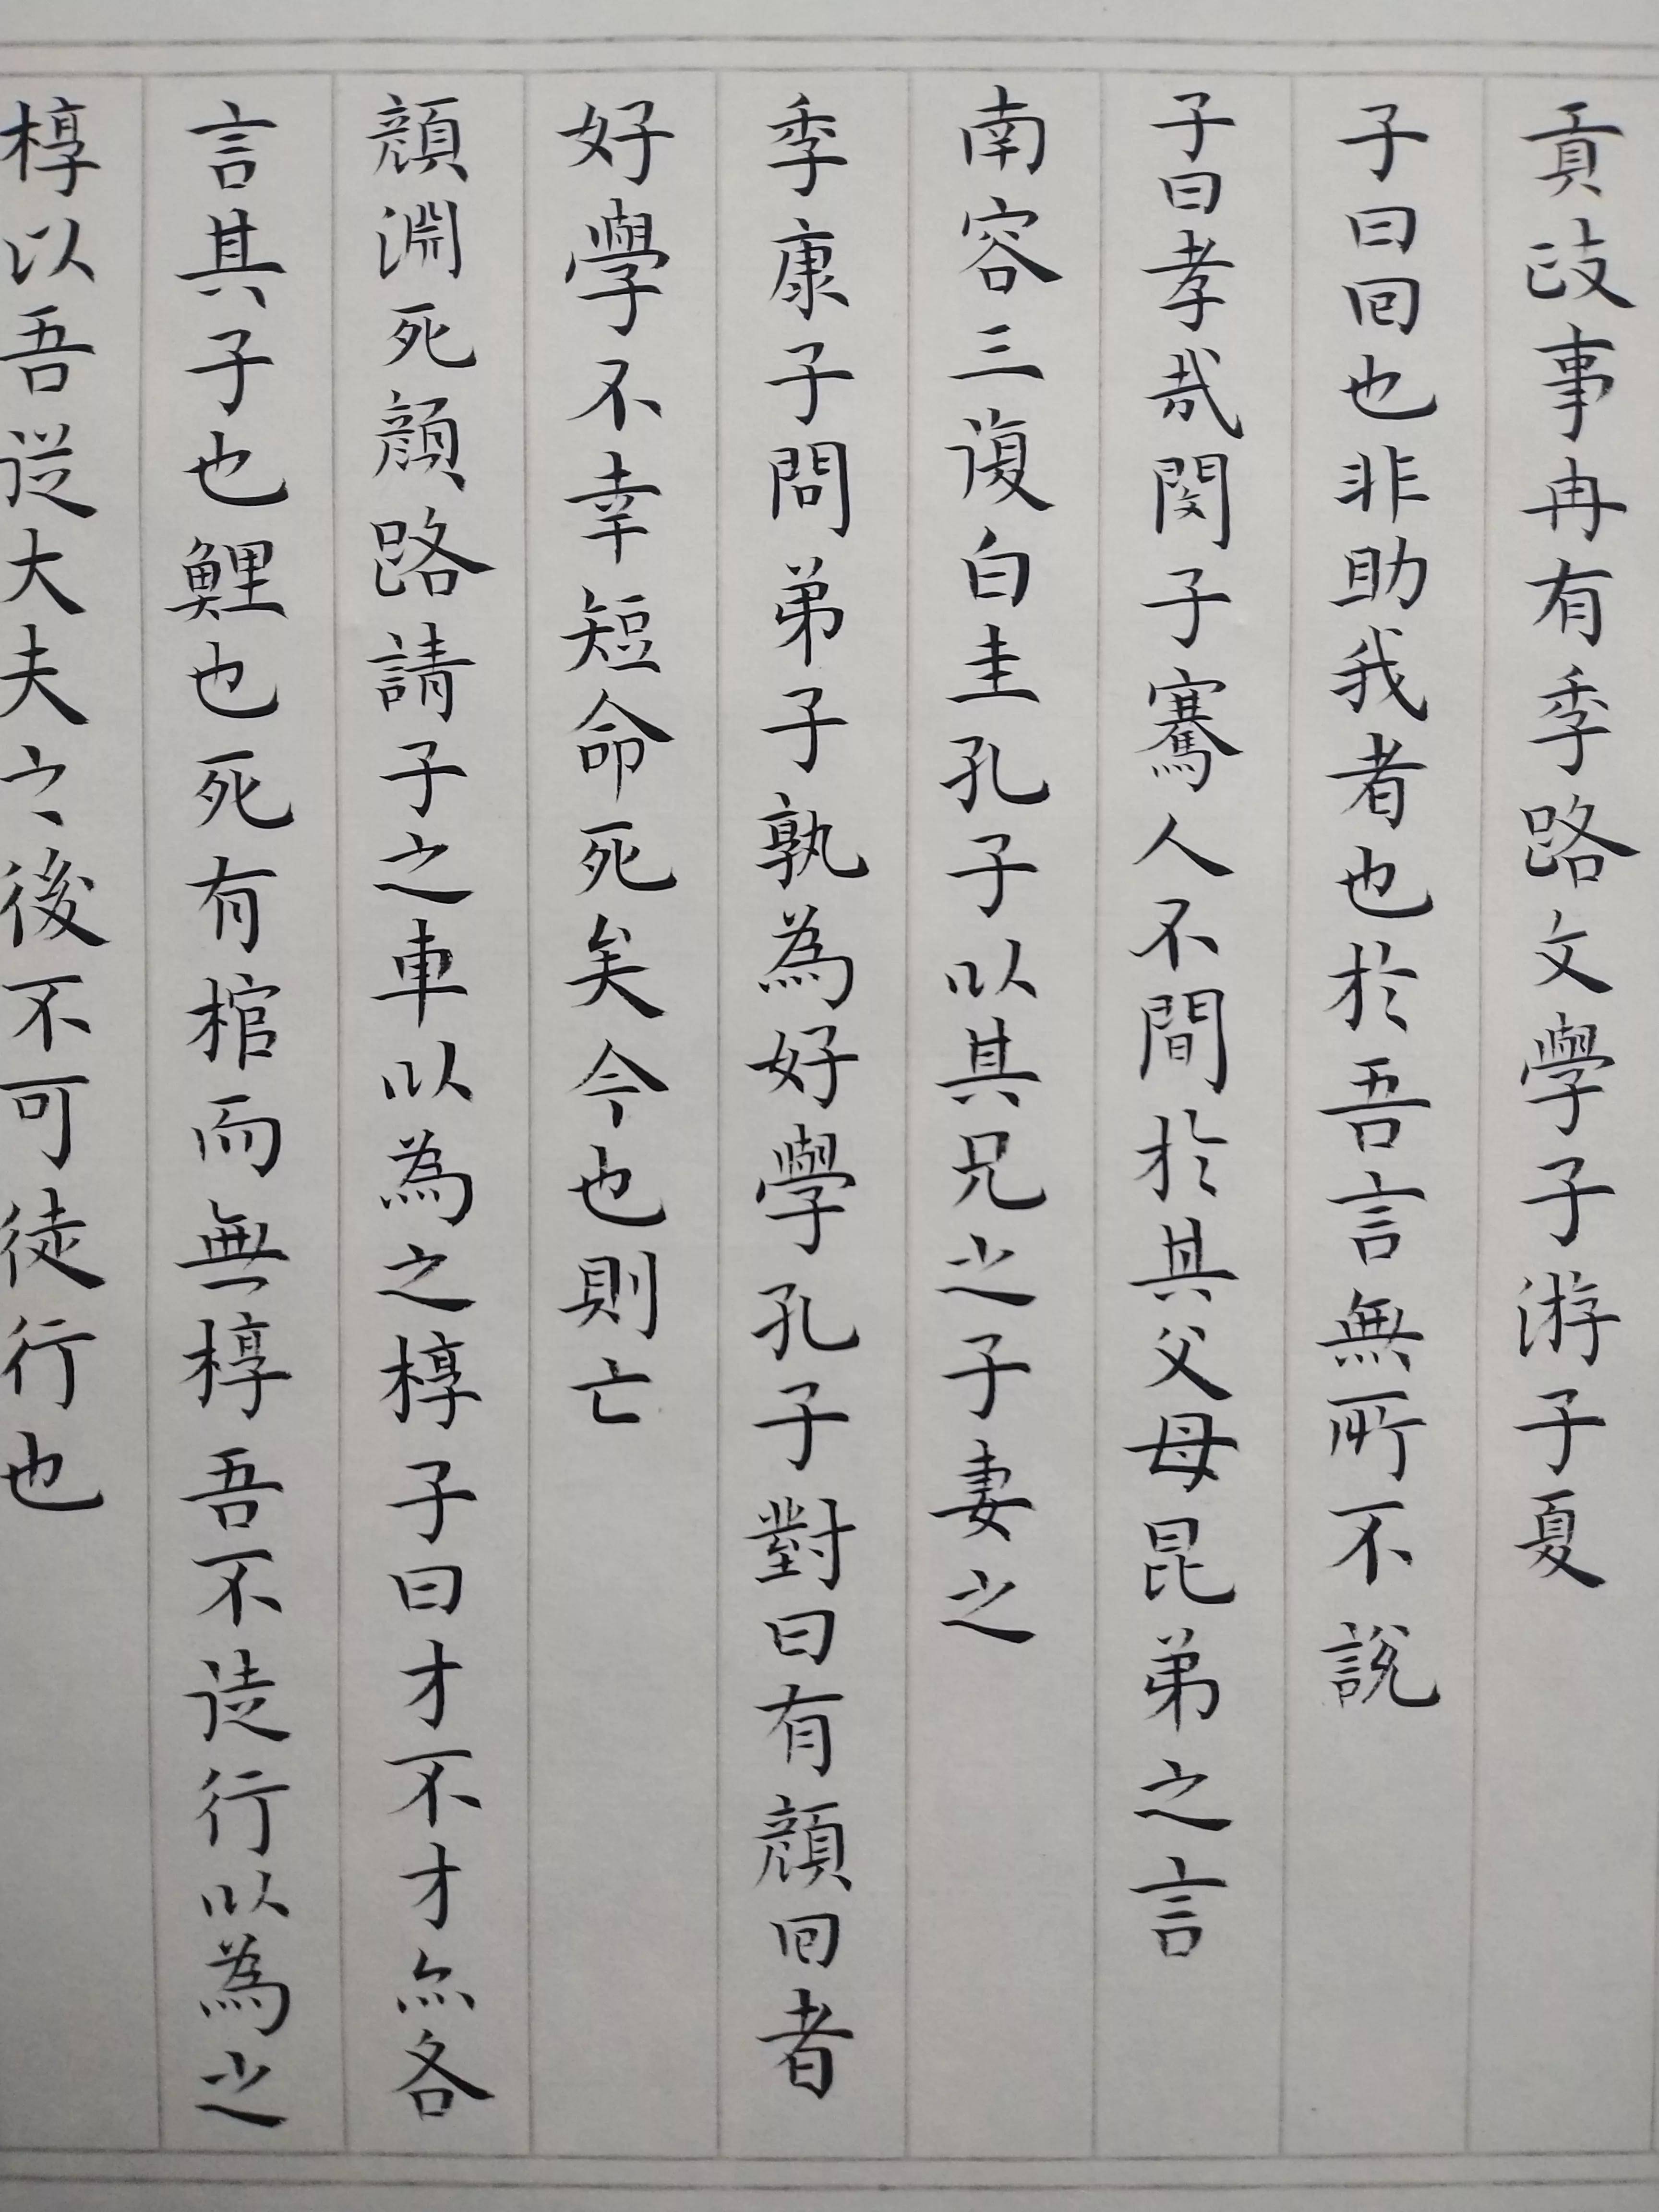 貢政事冉有季路文學子游子夏
子曰回也非助我者也於吾言無所不說
子曰孝哉閔子騫人不間於其父母昆弟之言
南容三復白圭孔子以其兄之子妻之
季康子問弟子孰為好學孔子對曰有顏回者
好學不幸短命死矣今也則亡
顏淵死顏路請子之車以為之椁子曰才不才亦各
言其子也鯉也死有棺而無椁吾不徒行以為之
椁以吾從大夫之後不可徒行也